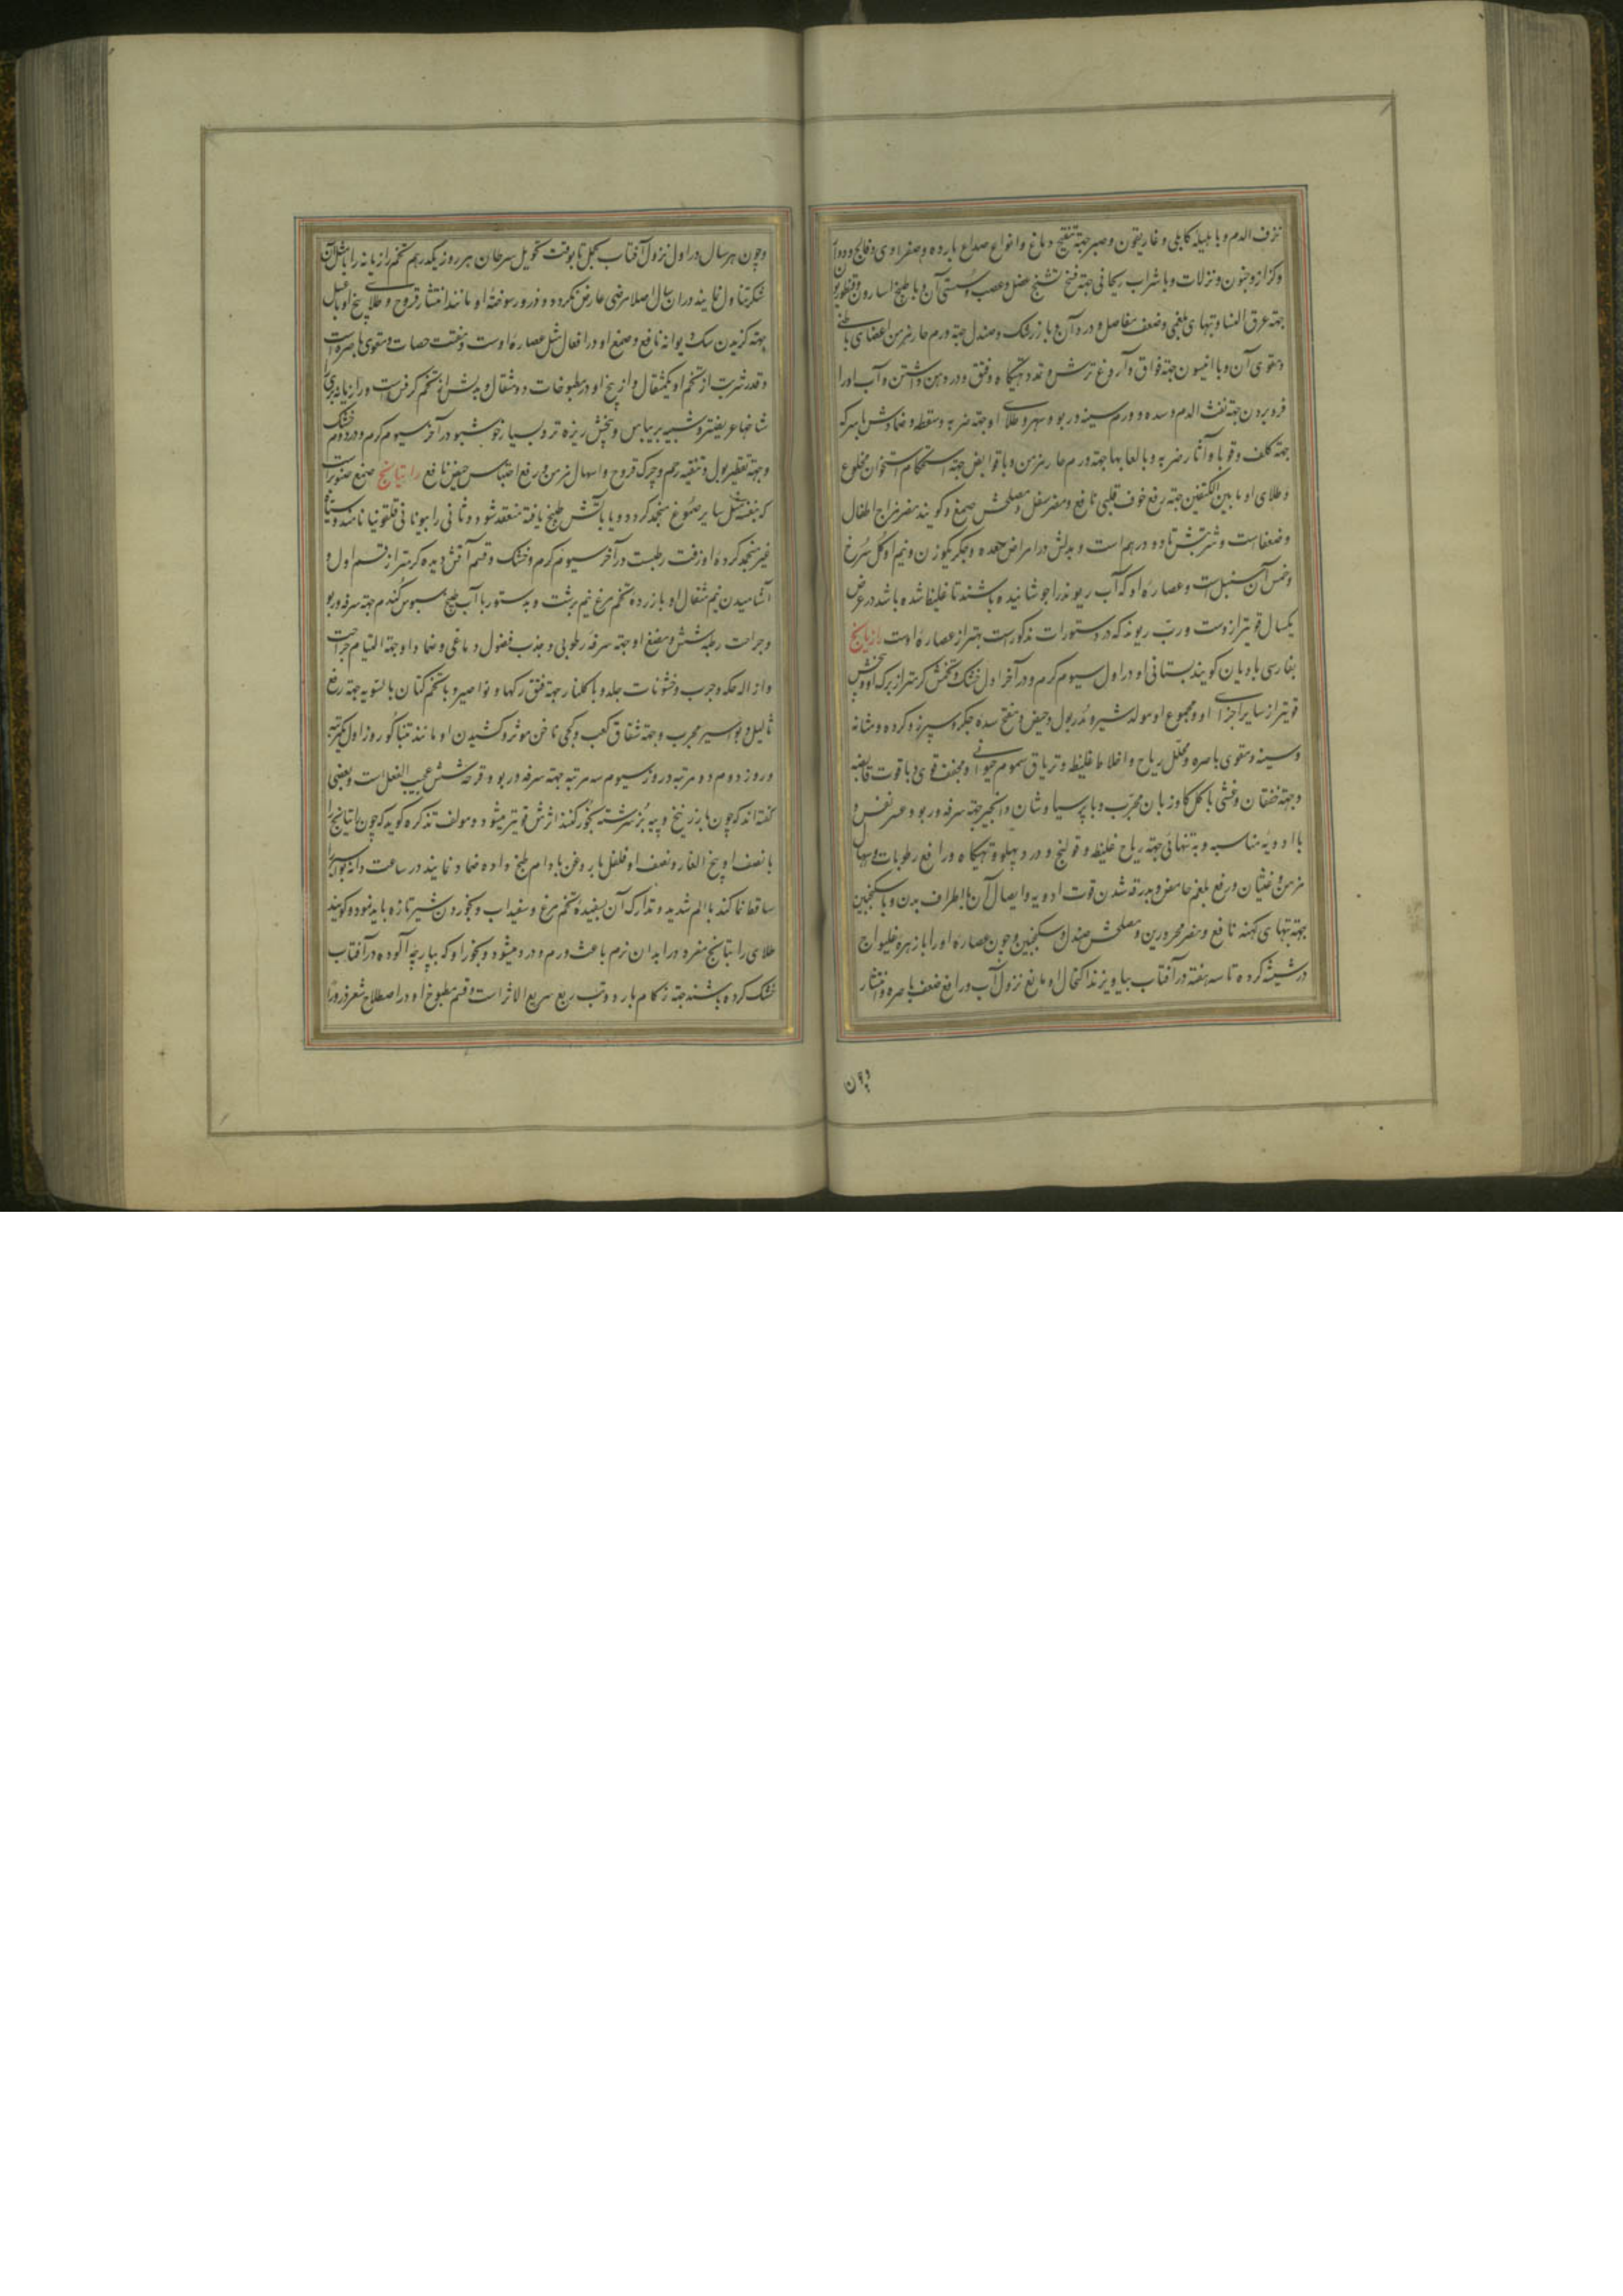 نزف الدم و با هلیله کابلی و غاریقون و صبر جهة تنقیح دماغ و انواع صداع بارده و صفراوی و فالج و دوار
و کزاز و جنون و نزلات و با شراب ریحانی جهة فسخ و تشنج عضل و عصب و سستی آن و با طبیخ اسارون و قنطوریون
جهة عرق النسا و تبهای بلغمی و ضعف مفاصل و درد آن و با زرشک و صندل جهة ورم حار مزمن اعضای باطنی
و مقوی آن و با انیسون جهة فواق و آروغ ترش و تمدد تهیکاه و فتق و در دهن داشتن و آب او را
فرو بردن جهة نفث الدم و سده و ورم سینه و ربو و سهر و طلای او جهة ضربه و سقطه و ضمادش با سرکه
جهة کلف و قوبا و آثار ضربه و با لعابها جهة ورم حار مزمن و با قوابض جهة استحکام استخوان مخلوع
و طلای او ما بین الکتفین جهة رفع خوف قلبی نافع و مضر سفل و مصلحش صمغ و گویند مضر مزاج اطفال
و ضعفاست و شربتش تا دو درهم است و بدلش در امراض معده و جگر یکوزن و نیم او گل سرخ
و خمس آن سنبل است و عصاره او که آب ریوند را جوشانیده باشند تا غلیظ شده باشد در عرض
یکسال قویتر ازوست و ربّ ریوند که در دستورات مذکور است بهتر از عصاره اوست رازیانج
بفارسی بادیان گویند بستانی او در اول سیوم گرم و در آخر اول خشک و تخمش گرمتر از برگ او و بیخش
قویتر از سایر اجزای او و مجموع او مولد شیر و مدر بول و حیض و مفتح سده جگر و سپرز و گرده و مثانه
و سینه و مقوی باصره و محلل ریاح و اخلاط غلیظه و تریاق سموم حیوانی و مجفف قوی و با قوت قابضه
و جهة خفقان و غشی با گل گاوزبان مجرّب و با پرسیاوشان و انجیر جهة سرفه و ربو و عسر نفس و
با ادویه مناسبه و به تنهائی جهة ریاح غلیظه و قولنج و درد پهلو و تهیکاه و رافع رطوبات و اسهال
مزمن و غثیان و رفع بلغم حامض و بدرقه شدن قوت ادویه و ایصال آن باطراف بدن و با سکنجبین
جهة تبهای کهنه نافع و مضر محرورین و مصلحش صندل و سکنجبین و چون عصاره او را با زهره غلیواج
در شیشه کرده تا سه هفته در آفتاب بیاویزند اکتحال او مانع نزول آب و رافع ضعف باصره و انتشار
و چون هر سال در اول نزول آفتاب بحمل تا بوقت تحویل سرطان هر روز یکدرهم تخم رازیانه را با مثل آن
شکر تناول نمایند در ان سال اصلا مرضی عارض نگردد و ذرور سوخته او مانند انتشار قروح و طلای بیخ او با عسل
جهة گزیدن سگ دیوانه نافع و صمغ او در افعال مثل عصاره اوست و مفتت حصات و مقوی باصره است
و قدر شربت از تخم او یکمثقال و از بیخ او در مطبوخات دو مثقال و بدلش از تخم کرفس است و رازیانه بری را
شاخها عریضتر و شبیه بریباس و بیخش ریزه تر و بسیار خوشبو در آخر سیوم گرم و در دوم خشک
و جهة تقطیر بول و تنقیه رحم و چرک قروح و اسهال مزمن و رفع احتباس حیض نافع راتیانج صمغ صنوبر است
که بنفسه مثل سایر صموغ منجمد گردد و یا بآتش طبخ یافته منعقد شود و ثانی را بیونانی قلفونیا نامند و سیّاه
غیر منجمد کرده او زفت رطبست در آخر سیوم گرم و خشک و قسم آتش دیده گرمتر از قسم اول و
آشامیدن نیم مثقال او با زرده تخم مرغ نیم برشت و بدستور با آب طبیخ سبوس گندم جهة سرفه و ربو
و جراحت ریه و شش و مضغ او جهة سرفه رطوبی و جذب فضول دماغی و ضماد او جهة التیام جراحت
و ازاله حکه و جرب و خشونات جلد و با گلنار جهة فتق رگها و نواصیر و با تخم کتان بالسویه جهة رفع
ثالیل و بواسیر مجرب و جهة شقاق کعب و کجی ناخن موثر و کشیدن او مانند تنباکو روز اول یکمرتبه
و روز دوم دو مرتبه و روز سیوم سه مرتبه جهة سرفه و ربو و قرحه شش عجیب الفعل است و بعضی
گفته اند که چون با زرنیخ و پیه بز سرشته بخور کنند اثرش قویتر میشود و مولف تذکره گوید که چون راتیانج را
با نصف او بیخ الغار و نصف او فلفل با روغن بادام طبخ داده ضماد نمایند در ساعت دانه بواسیر را
ساقط نماکند با الم شدید و تدارک آن بسفیده تخم مرغ و سفیداب و بخوردن شیر تازه باید نمود و گویند
طلای راتیانج مفرد در ابدان نرم باعث ورم و درد میشود و بخور او که بپارچه آلوده در آفتاب
خشک کرده باشند جهة زکام بارد و تب ربع سریع الاثر است و قسم مطبوخ او در اصطلاح
و چون